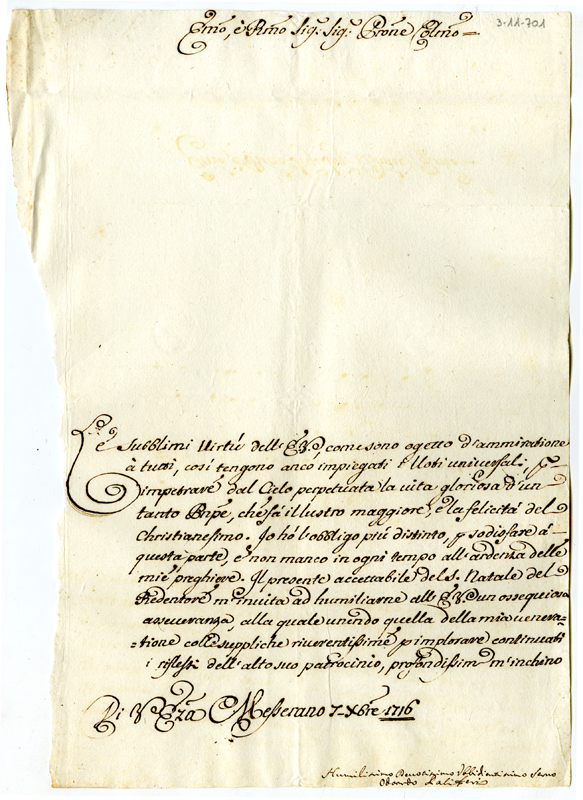 3-11-701
Emo, è Rmo Sig.r Sig.r Prone Colmo
Le Subblimi Virtú dell'E.V., come sono ogetto d'ammiratione
à tutti, cosi tengono anco impiegati i Voti universali, p
impetrare dal Cielo perpetuata la vita gloriosa d'un
tanto Pnpe, che fá il lustro maggiore, è la felicità del
Christianesimo. Io hò l'obbligo più distinto, p sodisfare à
questa parte, e non manco in ogni tempo all'ardenza delle
mie preghiere. Il presente accettabile del S. Natale del
Redentore m'invita ad humiliarne all'E.V. un ossequiosa
asseveranza, alla quale unendo quella della mia venera-
=tione colle suppliche riverentissime p implorare continuati
i riflessi dell'alto suo patrocinio, profondissim m'inchino
Di V Eza Messerano 7 Xbre 1716
Humilissimo Devotissimo Obbidientissimo Servo
Odoardo